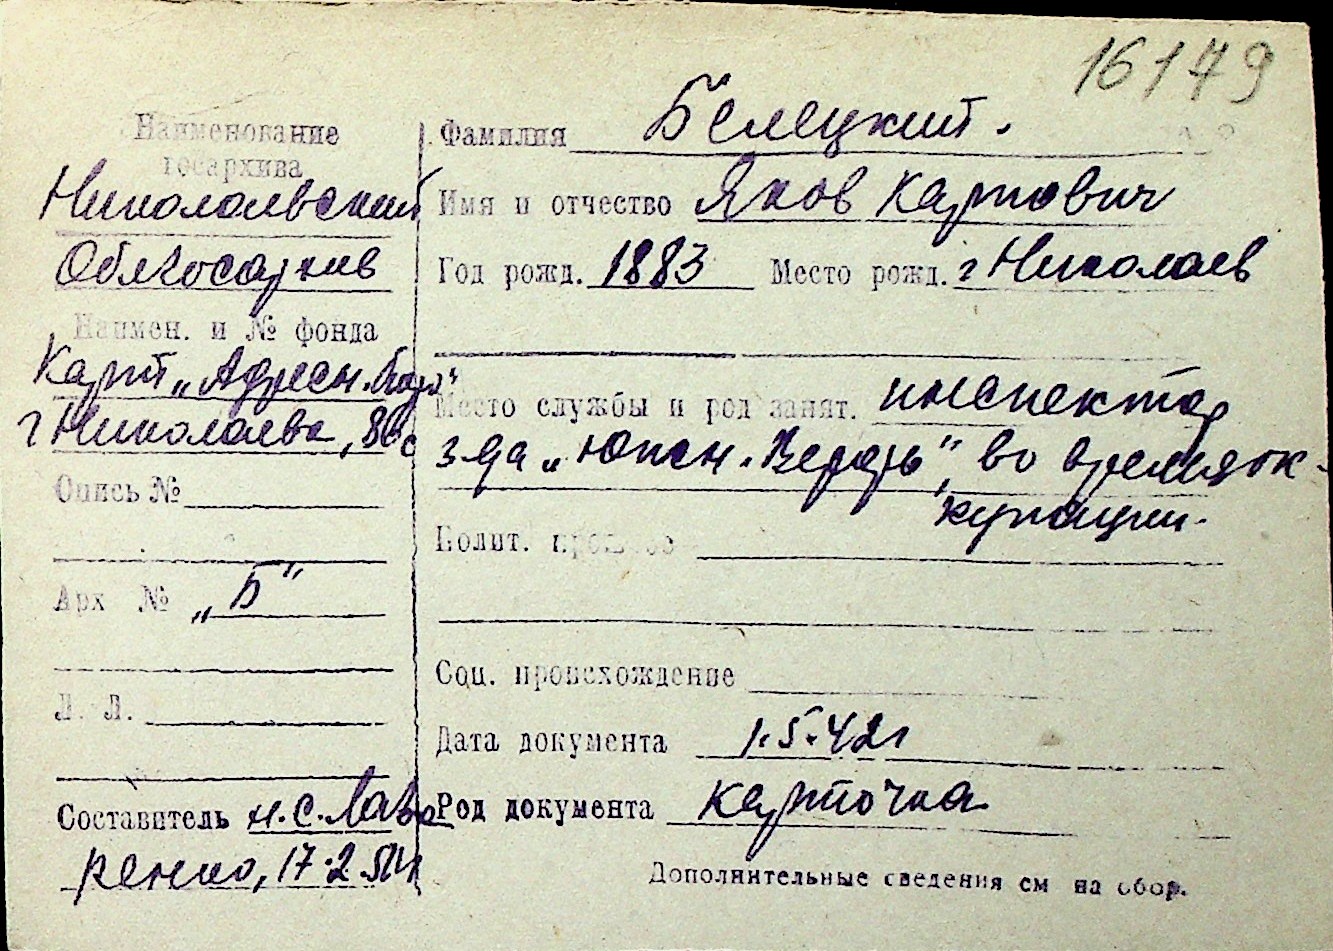 16179
Наименование
госархива
Николаевский
Облгосархив
Наимен. и № фонда
Карт. „Адресн. бюро"
г Николаева,
Опись №
Арх №
„Б"
Л. Л.
Составитель н.с.Лав
ренко, 17.2.54г
Фамилия Белецкий.
Имя и отчество Яков Карпович
Год рожд. 1883 Место рожд. г Николаев
Место службы и род занят. инспектор
з-да „Южн. Верфь", во время ок-
купации.
Полит. прошлое
Соц. происхождение
Дата документа 1.5.42г
Род документа карточка
Дополнительные сведения см на обор.